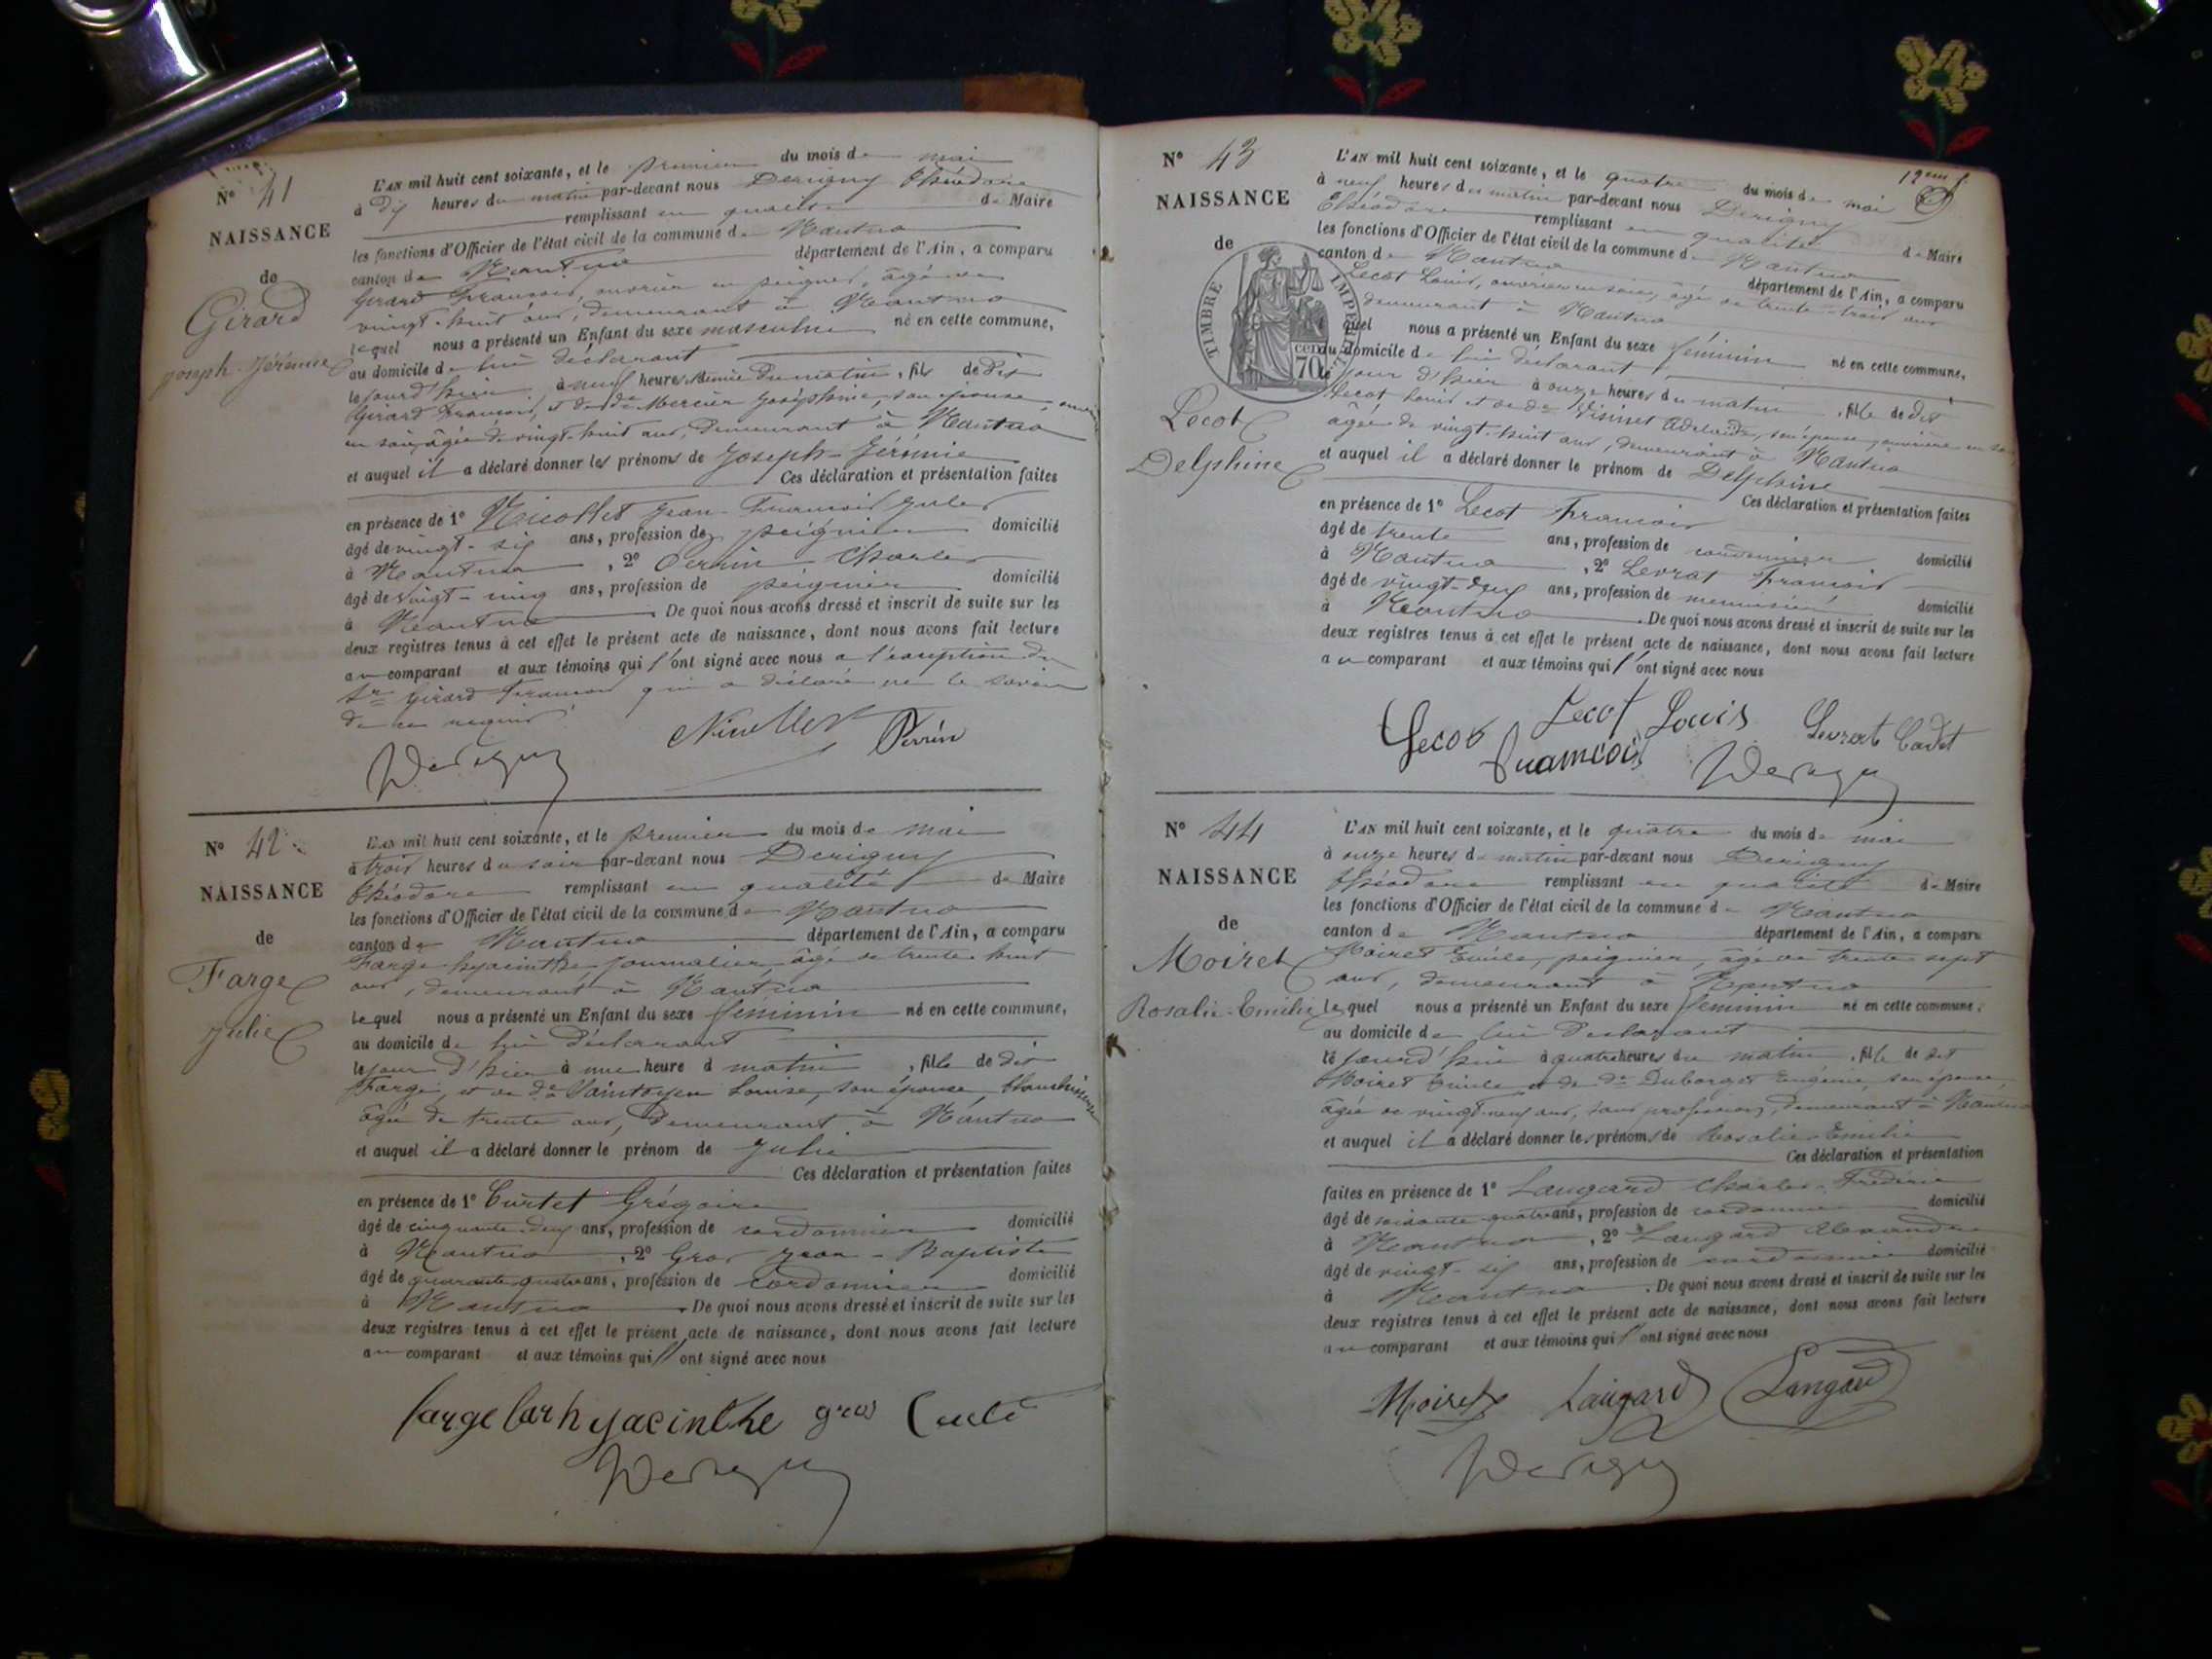 N° 41
NAISSANCE
de
Girard
Joseph-Jérémie
L'AN mil huit cent soixante, et le premier du mois de mai
à dix heures du matin par-devant nous Derigny Théodore
remplissant en qualité de Maire
les fonctions d'Officier de l'état civil de la commune de Nantua
canton de Nantua département de l'Ain, a comparu
Girard François, ouvrier en peignes, âgé de
vingt-huit ans, demeurant à Nantua
lequel nous a présenté un Enfant du sexe masculin né en cette commune,
au domicile de lui déclarant
le jour d'hier à neuf heures du matin, fils de dit
Girard François, et de de Mercier Joséphine, son épouse,
en soie, âgée de vingt-huit ans, demeurant à Nantua
et auquel il a déclaré donner les prénoms de Joseph-Jérémie
Ces déclaration et présentation faites
en présence de 1° Nicollet Jean François Jules
âgé de vingt-six ans, profession de peignier domicilié
à Nantua, 2° Perrin Charles
âgé de vingt-cinq ans, profession de peignier domicilié
à Nantua. De quoi nous avons dressé et inscrit de suite sur les
deux registres tenus à cet effet le présent acte de naissance, dont nous avons fait lecture
au comparant et aux témoins qui l'ont signé avec nous à l'exception du
Sr Girard François qui a déclaré ne le savoir
de ce requis.
Nicollet Perrin
Derigny
N° 42
NAISSANCE
de
Farge
Julie
L'AN mil huit cent soixante, et le premier du mois de mai
à trois heures du soir par-devant nous Derigny
Théodore remplissant en qualité de Maire
les fonctions d'Officier de l'état civil de la commune de Nantua
canton de Nantua département de l'Ain, a comparu
Farge hyacinthe journalier âgé de trente huit
ans, demeurant à Nantua
lequel nous a présenté un Enfant du sexe féminin né en cette commune,
au domicile de lui déclarant
le jour d'hier à une heure d matin, fille de dit
Farge, et de de Saintoyen Louise, son épouse, blanchisseuse
âgée de trente ans, demeurant à Nantua
et auquel il a déclaré donner le prénom de Julie
Ces déclaration et présentation faites
en présence de 1° Curtet Grégoire
âgé de cinquante-deux ans, profession de cordonnier domicilié
à Nantua, 2° Gros Jean-Baptiste
âgé de quarante quatre ans, profession de cordonnier domicilié
à Nantua. De quoi nous avons dressé et inscrit de suite sur les
deux registres tenus à cet effet le présent acte de naissance, dont nous avons fait lecture
au comparant et aux témoins qui l'ont signé avec nous
farge hyacinthe gros
Derigny
12em f.
N° 43
NAISSANCE
de
TIMBRE IMPERIAL
70
Lecot
Delphine
L'AN mil huit cent soixante, et le quatre du mois de mai
à neuf heures du matin par-devant nous Derigny
Théodore remplissant en qualité de Maire
les fonctions d'Officier de l'état civil de la commune de Nantua
canton de Nantua département de l'Ain, a comparu
Lecot Louis, ouvrier en soie, âgé de trente-trois ans
demeurant à Nantua
quel nous a présenté un Enfant du sexe féminin né en cette commune,
au domicile de lui déclarant
jour d'hier à onze heures du matin, fille de dit
Lecot Louis et de de Visinet Adelaïde, son épouse, ouvrière en soie
âgée de vingt-huit ans, demeurant à Nantua
et auquel il a déclaré donner le prénom de Delphine
Ces déclaration et présentation faites
en présence de 1° Lecot François
âgé de trente ans, profession de cordonnier domicilié
à Nantua, 2° Levrat François
âgé de vingt-deux ans, profession de menuisier domicilié
à Nantua. De quoi nous avons dressé et inscrit de suite sur les
deux registres tenus à cet effet le présent acte de naissance, dont nous avons fait lecture
au comparant et aux témoins qui l'ont signé avec nous
Lecot Louis Levrat Cadet
Lecot
Francois Derigny
N° 44
NAISSANCE
de
Moiret
Rosalie-Emilie
L'AN mil huit cent soixante, et le quatre du mois de mai
à onze heures du matin par-devant nous Derigny
Théodore remplissant en qualité de Maire
les fonctions d'Officier de l'état civil de la commune de Nantua
canton de Nantua département de l'Ain, a comparu
Moiret Emile, peignier, âgé de trente sept
ans, demeurant à Nantua
lequel nous a présenté un Enfant du sexe féminin né en cette commune,
au domicile de lui déclarant
le jourd'hui à quatre heures du matin, fille de dit
Moiret Emile et de de Duborget Eugénie, son épouse
âgée de vingt-neuf ans, sans profession, demeurant à Nantua
et auquel il a déclaré donner les prénoms de Rosalie-Emilie
Ces déclaration et présentation
faites en présence de 1° Laugard Charles-Frédéric
âgé de soixante quatre ans, profession de cordonnier domicilié
à Nantua, 2° Laugard Alexandre
âgé de vingt-six ans, profession de cordonnier domicilié
à Nantua. De quoi nous avons dressé et inscrit de suite sur les
deux registres tenus à cet effet le présent acte de naissance, dont nous avons fait lecture
au comparant et aux témoins qui l'ont signé avec nous
Moiret Laugard Laugard
Derigny